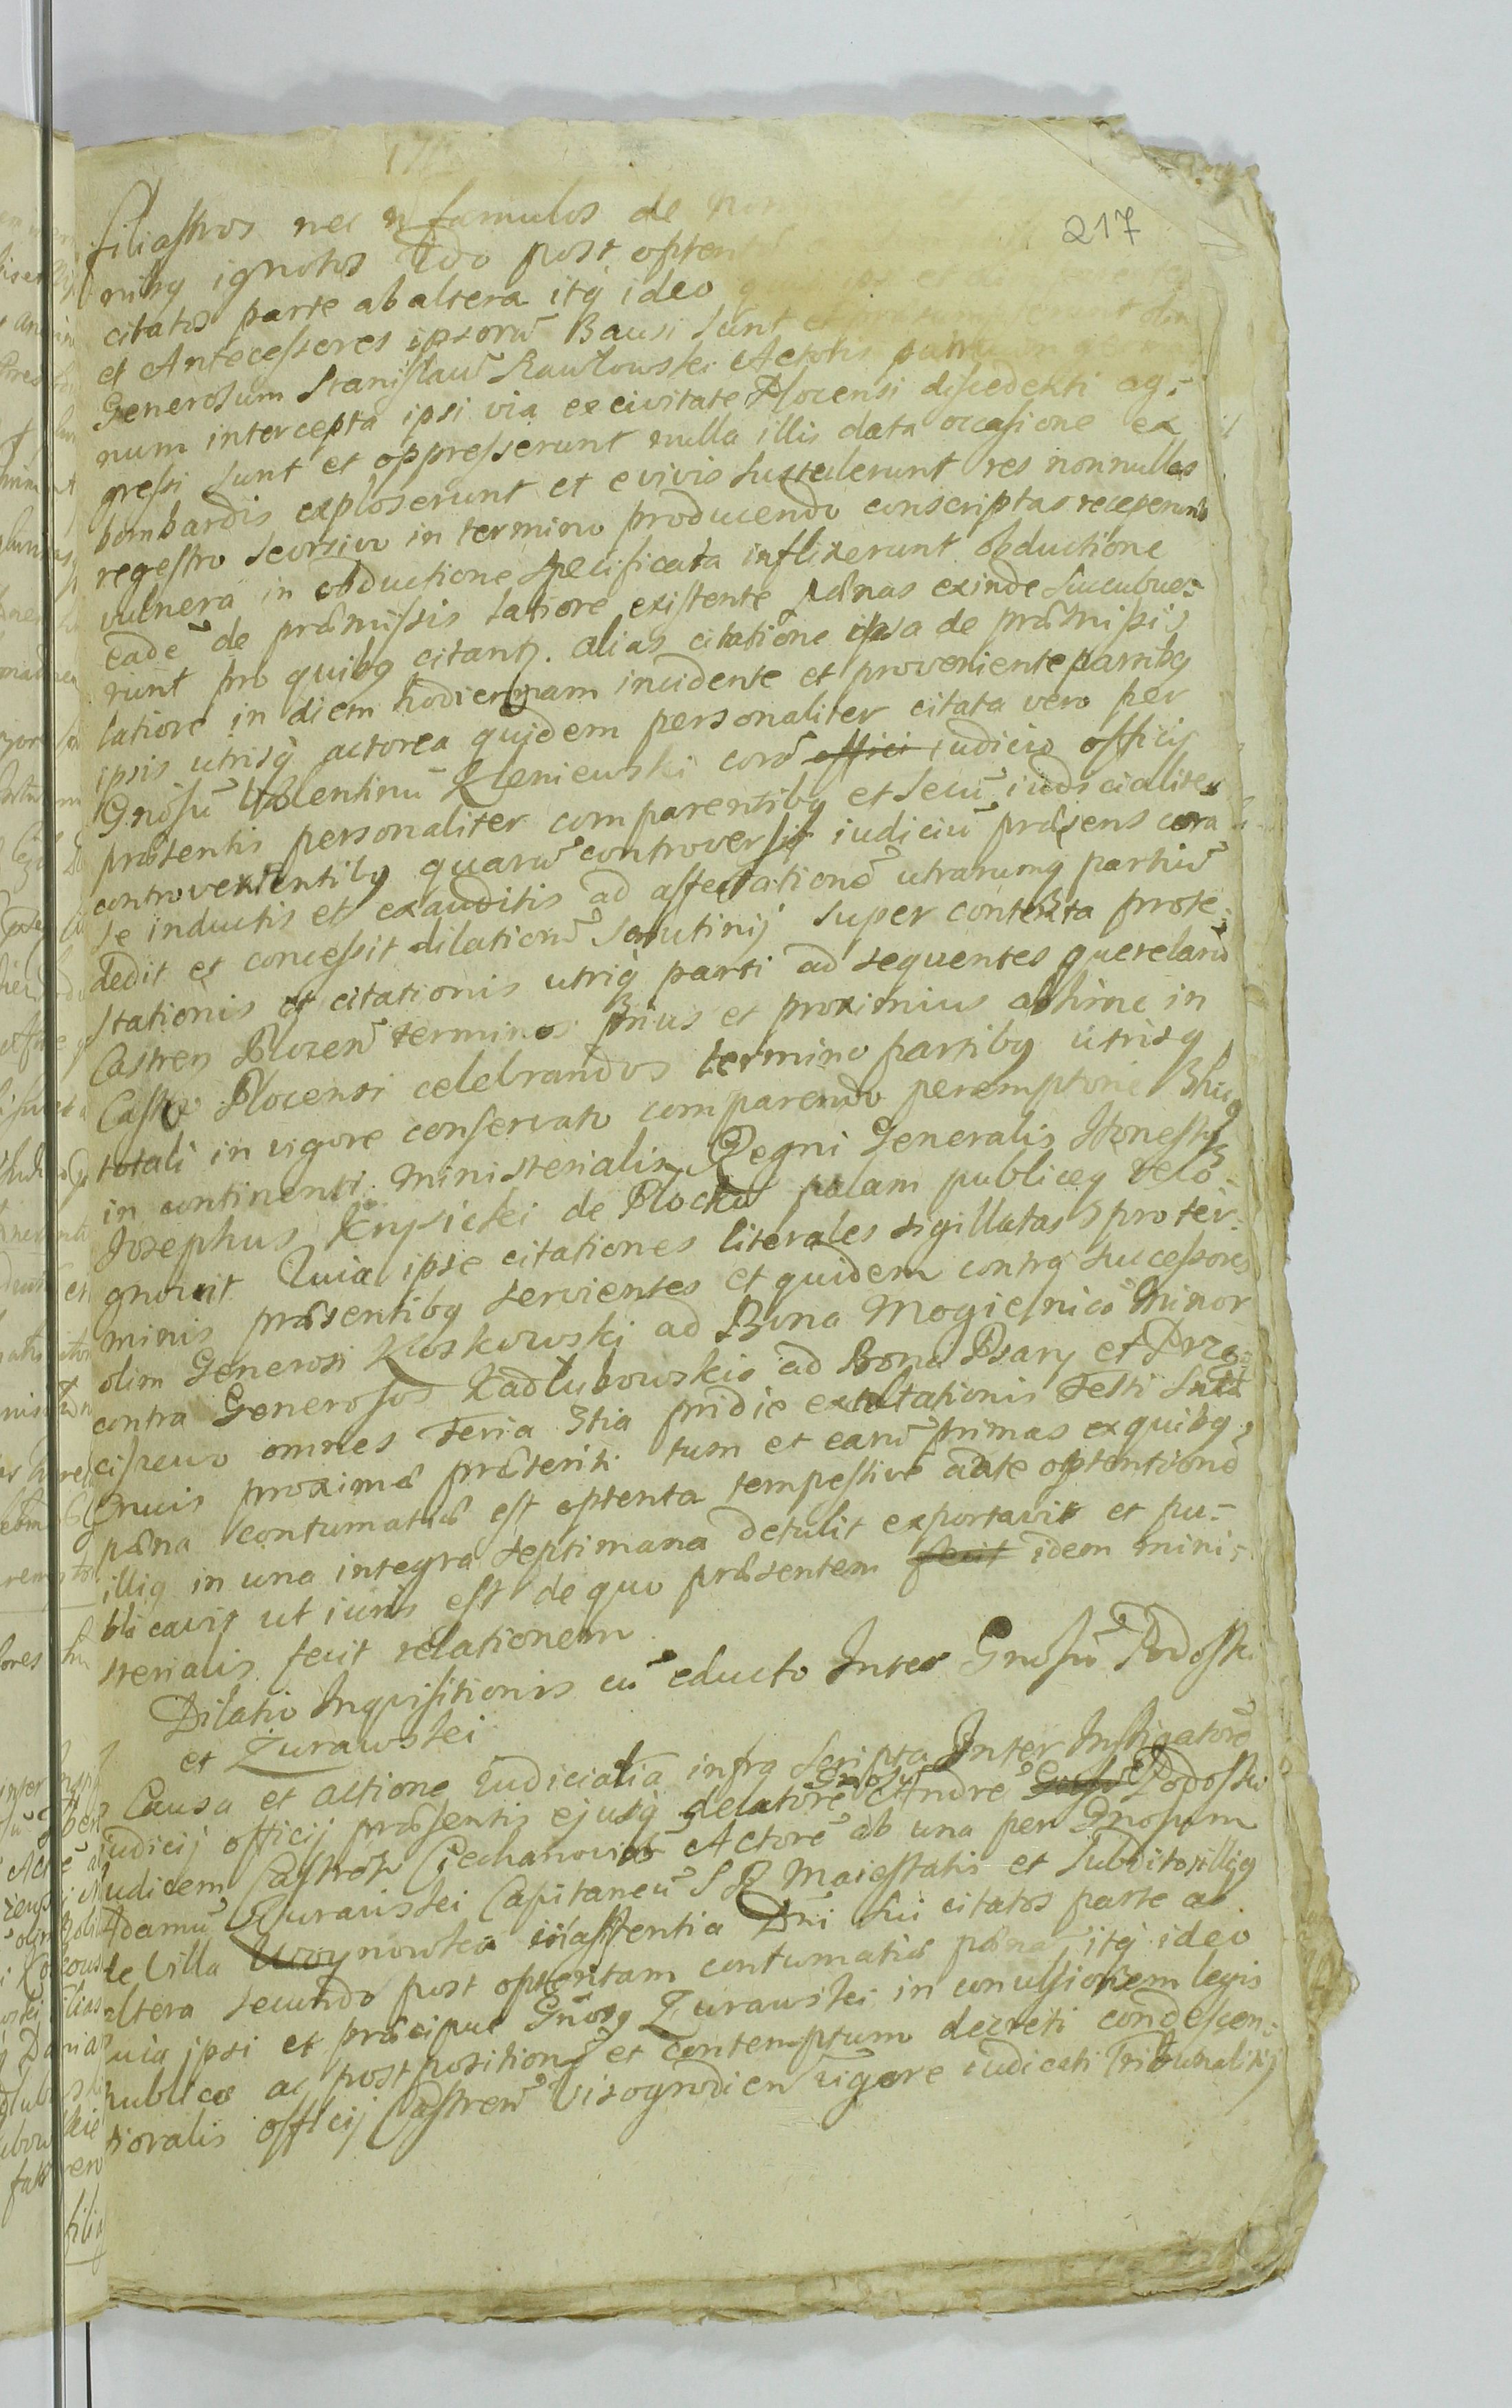 217
filiastros nec n famulos de
nibq ignotos 2do post opten
citatos parte ab altera itq ideo
et Antecessores ipsorū Bausi sunt
Generosum Stanislaū Rawłowski Actoris patrū
num intercepta ipsi via ex civitate Plocensi discedenti ag-
gressi sunt et oppresserunt nulla illis data occasione ex
bombardis exploserunt et e vivis sustulerunt res nonnullas
regestro seorsivo in termino producendo conscriptas receperunt
vulnera in obductione specificata inflixerunt obductione
eadē de præmissis latiore existente pænas exinde succubue-
runt pro quibq citantr. alias citatione ipsa de præmissis
latiore in diem hodiernam incidente et proveniente partibq
ipsis utrisq actorea quidem personaliter citata vero per
Gnōsū Valentinū Kleniewski corā offici iudicio officij
præsentis personaliter comparentibq et secū iudicialiter
controvertentibq quarū controversijs iudiciū præsens cora
se inductis et exauditis ad affectationē utrarumq partiū
dedit et concessit dilationē scrutinij super contenta prote-
stationis et citationis utriq parti ad sequentes querelarū
Castren Plocen terminos prius et proximius abhinc in
Castro Plocensi celebrandos termino partibq utrisq
totali in vigore conservato comparendo peremptorie
in continenti Ministerialis Regni Generalis Honestus
Josephus Krysicki de Plocko palam publiceq reco-
gnovit Quia ipse citationes literales sigillatas pro ter-
minis præsentibq servientes et quidem contra successores
olim Generosi Koskowski ad Bona Mogielnica Minor
contra Generosos Kadłubowskie ad Bona Psary et Prze-
ciszewo omnes Feria 3tia pridie exaltationis Festi Sntæ
Crucis proximæ præteriti tum et earū primas ex quibq
pæna contumatiæ est optenta tempestivē ante optentionē
illiq in una integra septimana detulit exportavit et pu-
blicavit ut iuris est de quo præsentem fecit idem mini-
sterialis fecit relationem
Dilatio Inquisitionis cū educto Inter Gnosū Podoski
et Zurawski
Causa et actione Iudicialia infra scripta Inter Instigatorē
iudicij officij præsentis ejusq delatorē Gnosū Andreē Gnosū Podoski
Iudicem Castren Ciechanovien Actorē ab una per Gnosum
Adamū Zurawski Capitaneū S R Maiestatis et subditos illiq
de Villa Woynowka in assistentia Dni sui citatos parte ab
altera secundo post optentam contumatiæ pænā itq ideo
uia ipsi et præcipue Gnosq Zurawski in convulsionem legis
publicæ ac postpositionē et contemptum decreti condescen-
sioralis officij Castren Visogrodien vigore iudicati Tribunalitij